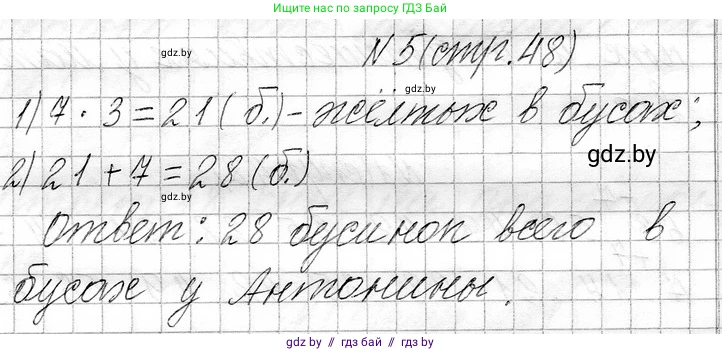 Ищите нас по запросу ГДЗ Бай
gdz.by
N 5 (стр. 48)
gdz.by
1) 7 · 3 = 21 ( б.) - жёлтых в бусах ;
gdz.by
2) 21 + 7 = 28 (б.)
gdz.by
Ответ : 28 бусинок всего в
бусах у Антонины.
gdz.by // гдз бай // gdz.by